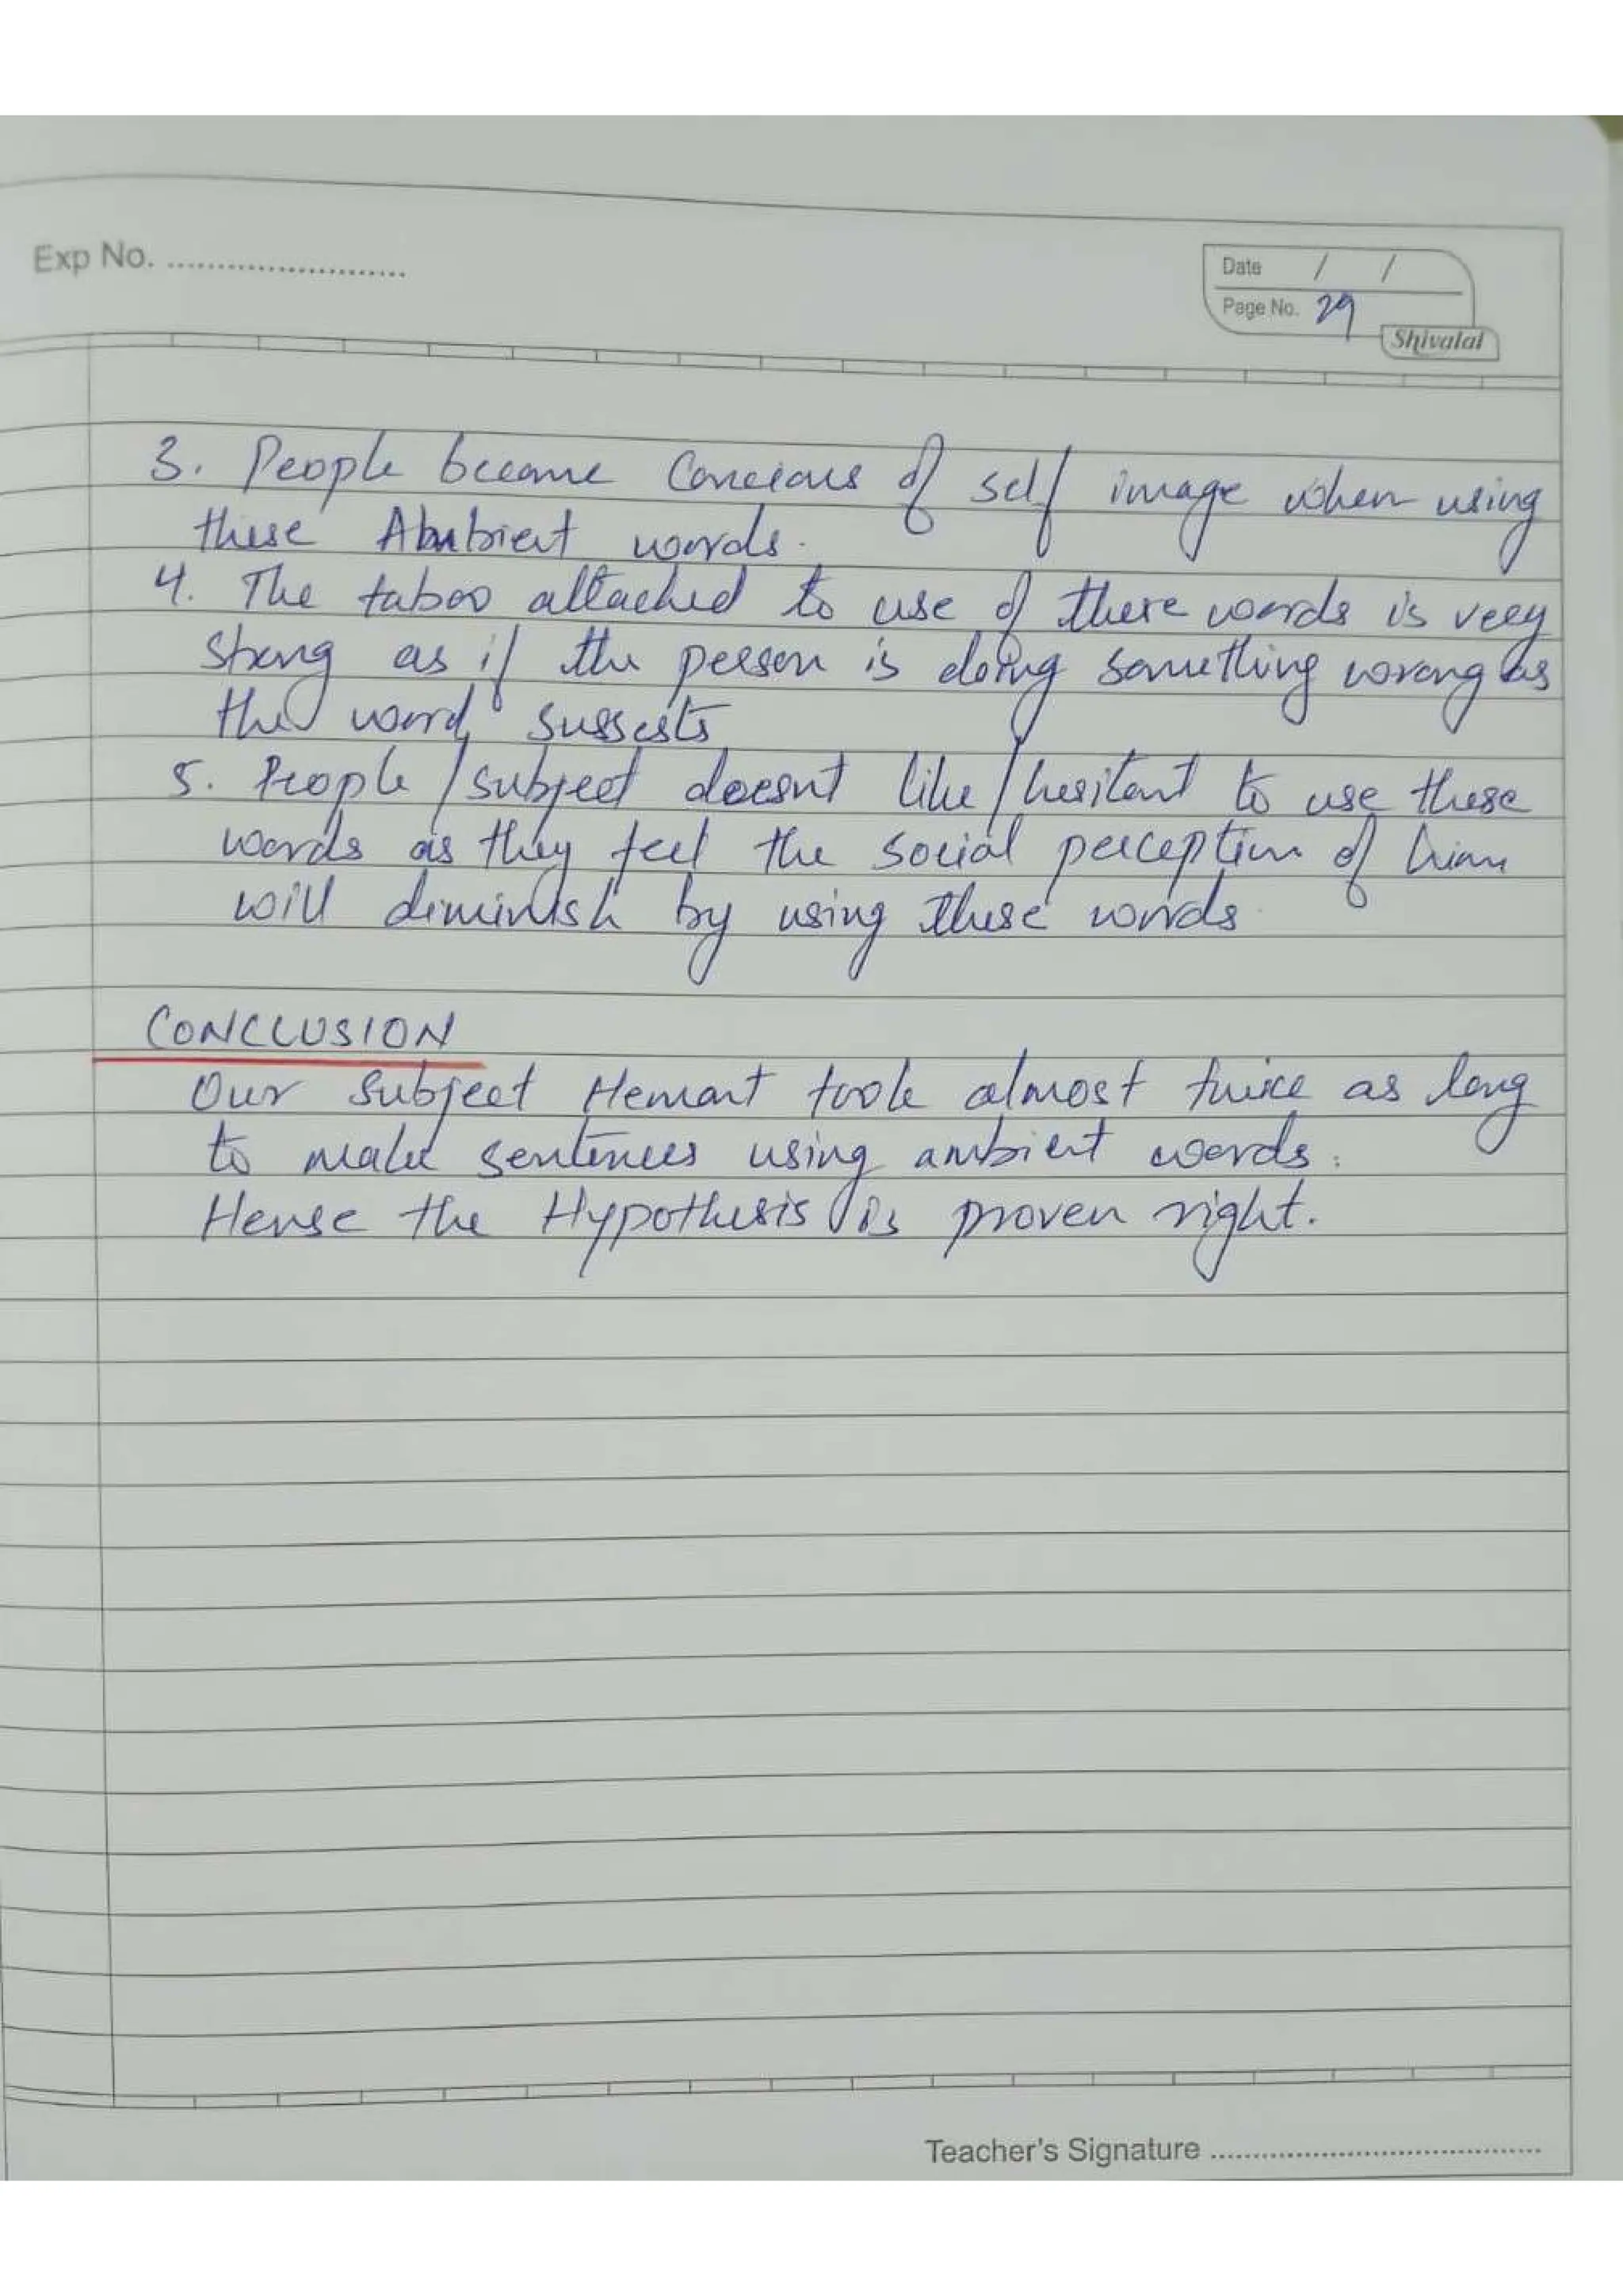 Exp No. ........................
Date / /
Page No. 29
Shivalal
3. People became Concious of self image when using
these Abmbient words.
4. The taboo attached to use of these words is very
strong as if the person is doing something wrong as
the word suggests
5. People / subject doesnt like / hesitant to use these
words as they feel the social perception of him
will diminish by using these words
CONCLUSION
Our Subject Hemant took almost twice as long
to make sentences using ambient words.
Hense the Hypothesis is proven right.
Teacher's Signature ........................